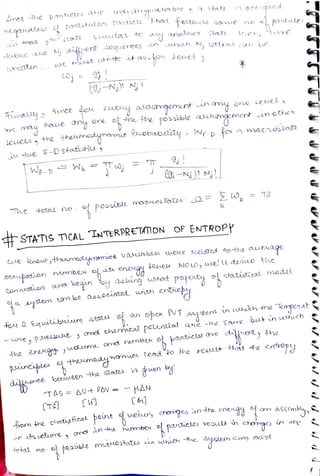 since the particles are indistinguishable, a state is occupied
regardless of particular particle that follows same no. of particles
in that state similar to any another state then, since
there are Nj! different sequences in which Nj letters can be
written... we must write it as, for level j
ωj = gj! / (gj-Nj)! Nj! *
Finally, since for every arrangement in any one level,
we may have any one of the the possible arrangement in other
levels, the thermodynamic probability WF.D for a macrostate
in the F-D statistics,
WF.D = Wk = π ωj = π gj! / (gj-Nj)! Nj!
The total no. of possible macrostates Ω = Σ Wk = 73
k
# STATISTICAL INTERPRETATION OF ENTROPY
we know, thermodynamics variables were related to the average
occupation number of its energy level. Now, we'll derive the
connection and begin by asking what property of statistical model
of a system can be associated with entropy
for 2 Equilibrium states of an open PVT system in which the Temperat
-ure, pressure, and chemical potential are the same but in which
the energy, volume and number of particles are different, the
principles of thermodynamics lead to the result that the entropy
difference between the states is given by:
TΔS = ΔU + PΔV - μΔN
from the statistical point of view, changes in the energy of an assembly,
in its volume, and in the number of particles result in changes in the
total no. of possible microstates in which the system can exist